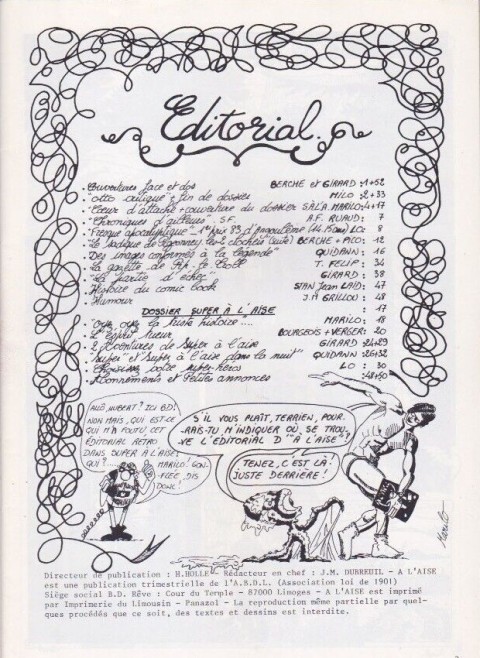 Editorial.
. Couvertures face et dos BERCHE et GIRARD : 1+52
. "otto critique" + fin de dossier MILO : 2+33
. Cœur d'attache + ouverture du dossier SALA MARILO : 4+17
. "Chroniques d'ailleurs". S.F. A.F. RUAUD : 7
. "Fresque apocalyptique - 1er prix 83 d'Angoulême LO : 8
. "Le sadique de BERCHE + PICO : 12
. "Des images conformes à la légende" QUIDANN : 16
. "La gazette de T. FELIP : 34
. "La partie d'échec" GIRARD : 38
. Histoire du comic book STAN Jean LAID : 47
. Humour J.M GRILLOU : 48
DOSSIER SUPER À L'AISE : 17
la triste histoire .... MARILO : 18
. L'esprit tueur BOURGEOIS + VERGER : 20
. 2 Aventures de Super à l'aise GIRARD : 24+29
. "Super et Super à l'aise dans la nuit" QUIDANN : 26+32
. Choisissez votre super-héros LO : 30
. Abonnements et Petites annonces : 48+50
ALLÔ, HUBERT ? ICI BD !
NON MAIS, QUI EST-CE
QUI M'A FOUTU, CET
ÉDITORIAL RETRO
DANS SUPER A L'AISE ?
QUI ?.... MARILO ! GON-
FLÉE, DIS
DONC !
S'IL VOUS PLAÎT, TERRIEN, POUR-
RAIS-TU M'INDIQUER OÙ, SE TROU-
VE L'ÉDITORIAL D'"A L'AISE" ?
TENEZ, C'EST LÀ !
JUSTE DERRIÈRE !
Marilo
Directeur de publication : H.HOLLE - Rédacteur en chef : J.M. DUBREUIL - A L'AISE
est une publication trimestrielle de l'A.R.B.D.L. (Association loi de 1901)
Siège social B.D. Rêve : Cour du Temple - 87000 Limoges - A L'AISE est imprimé
par Imprimerie du Limousin - Panazol - La reproduction même partielle par quel-
ques procédés que ce soit, des textes et dessins est interdite.